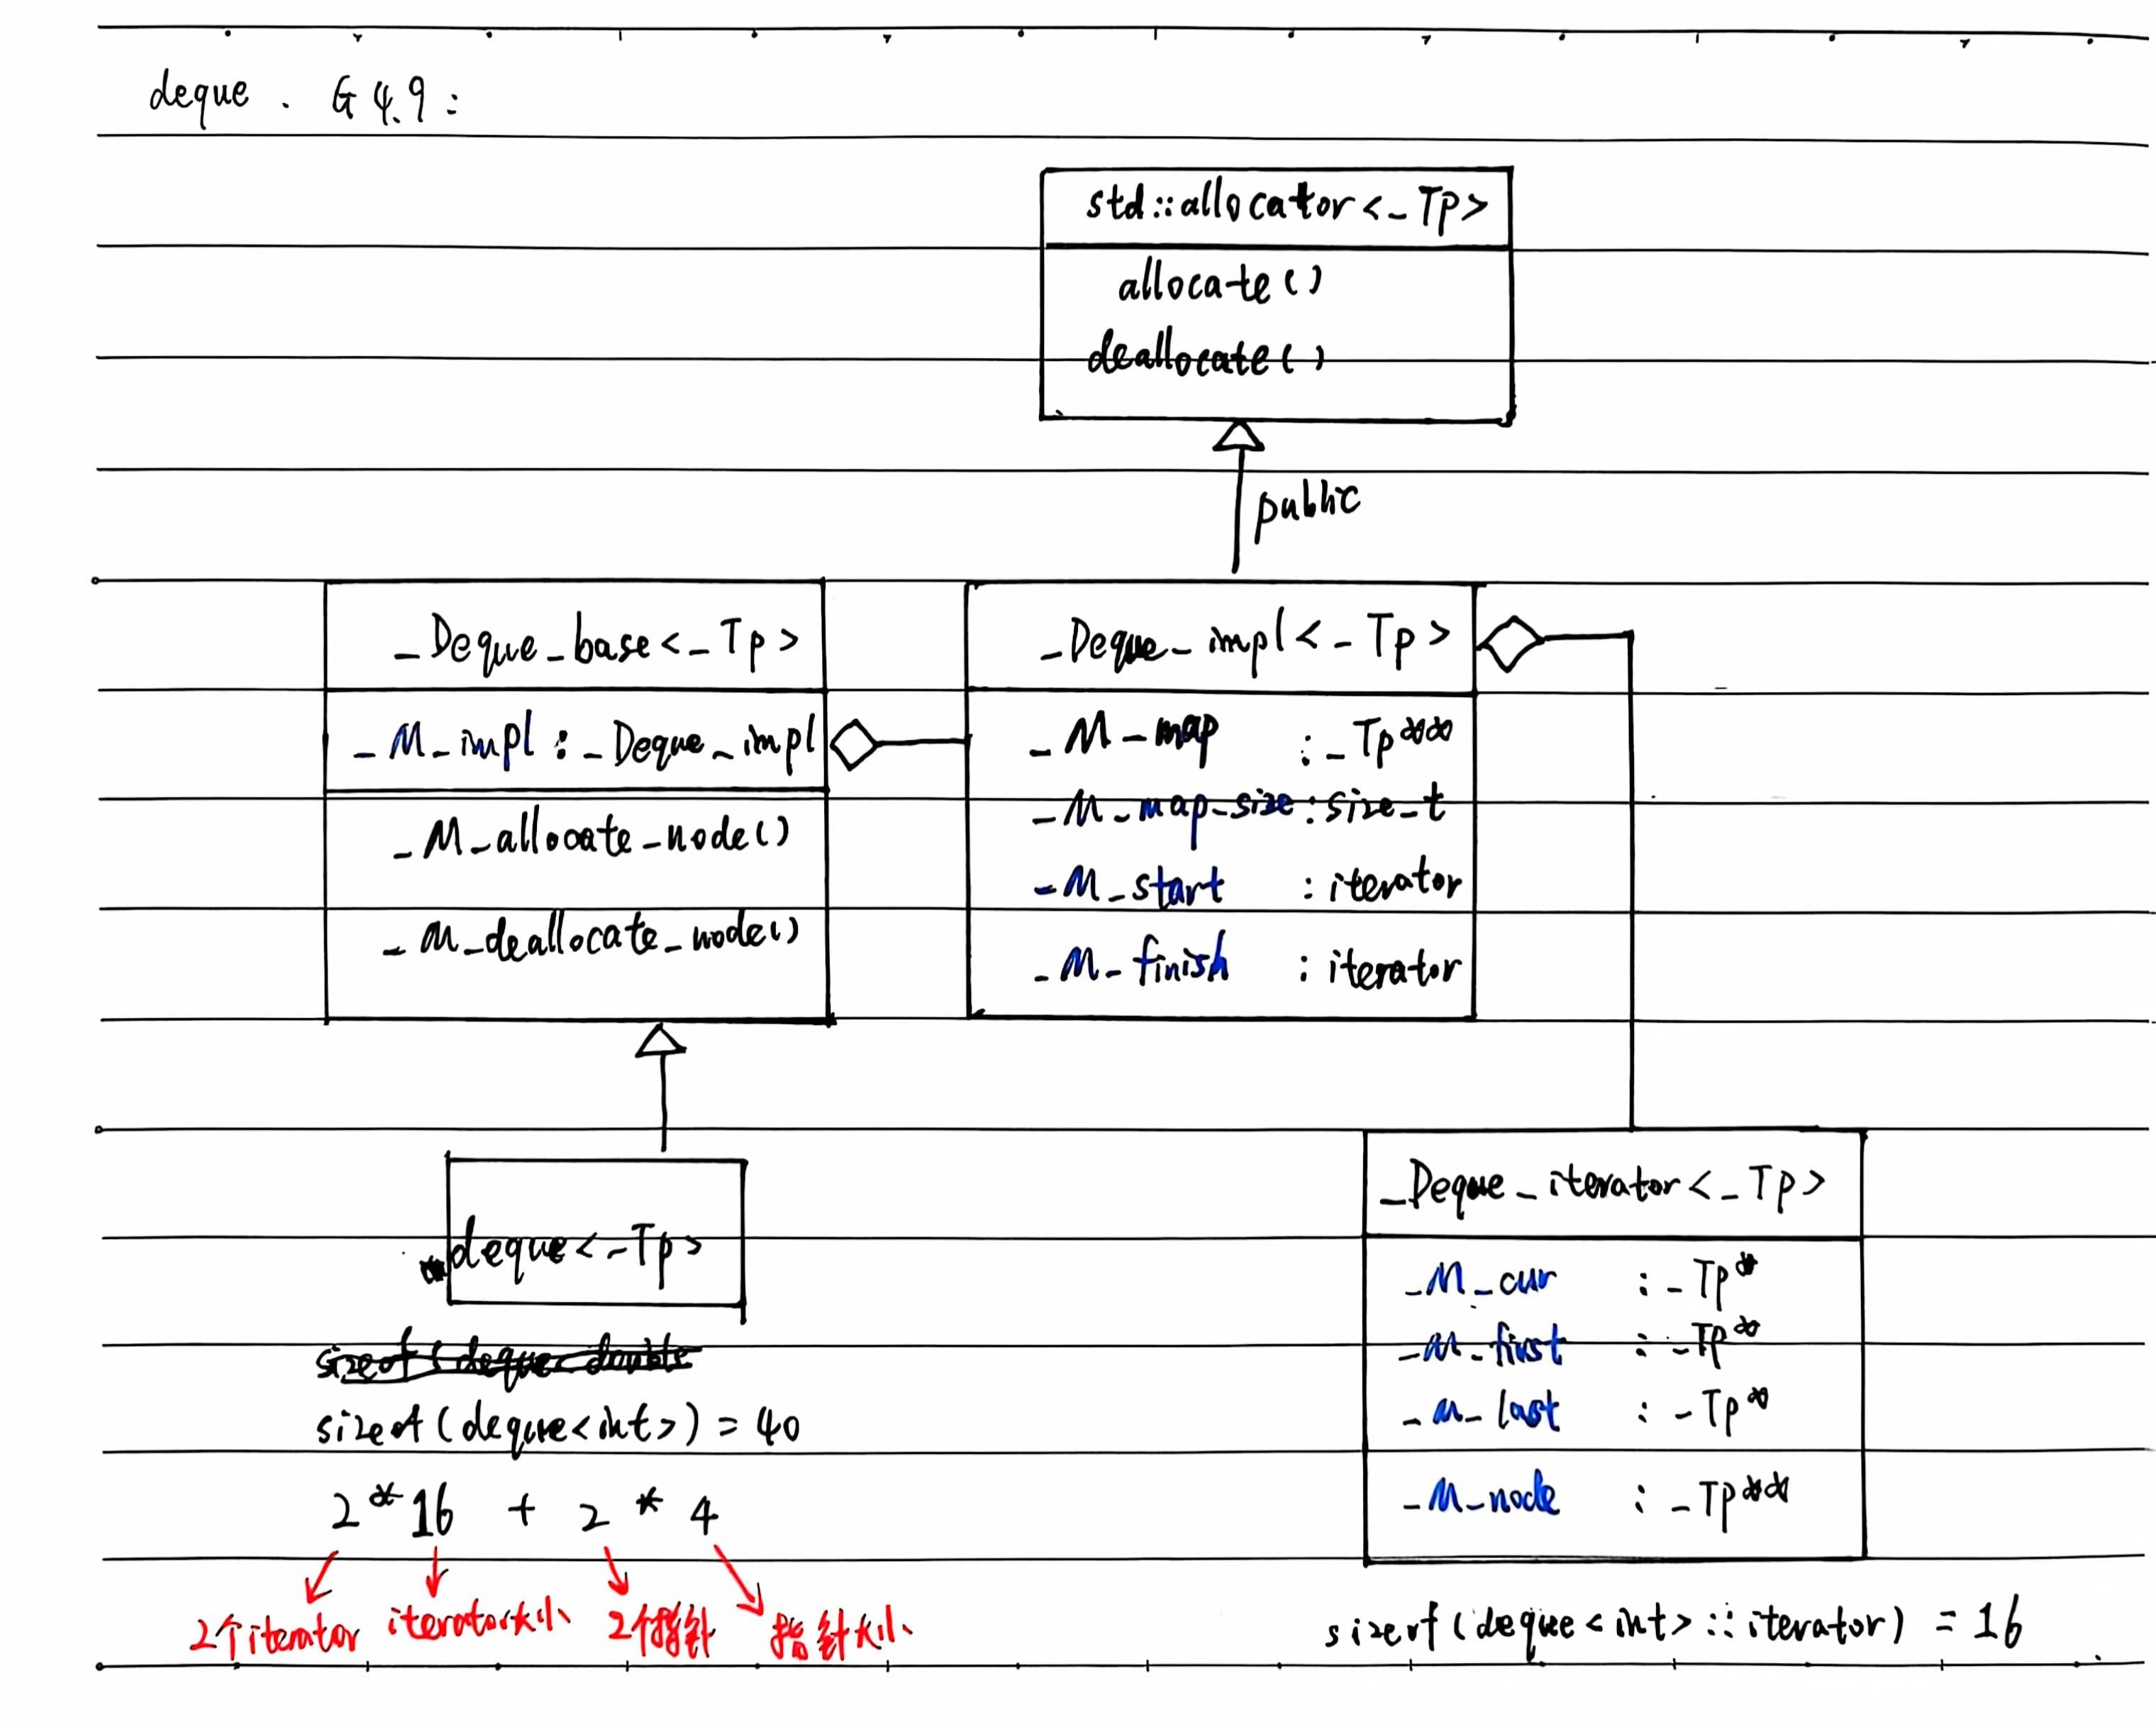 deque . G4.9 :
std::allocator<_Tp>
allocate()
deallocate()
public
_Deque_base<_Tp>
_M_impl : _Deque_impl
_M_allocate_node()
_M_deallocate_node()
_Deque_impl<_Tp>
_M_map : _Tp**
_M_map_size : size_t
_M_start : iterator
_M_finish : iterator
deque<_Tp>
sizeof(deque<double
sizeof(deque<int>) = 40
2 * 16 + 2 * 4
2个iterator iterator大小 2个指针 指针大小
_Deque_iterator<_Tp>
_M_cur : _Tp*
_M_first : _Tp*
_M_last : _Tp*
_M_node : _Tp**
sizeof(deque<int>::iterator) = 16